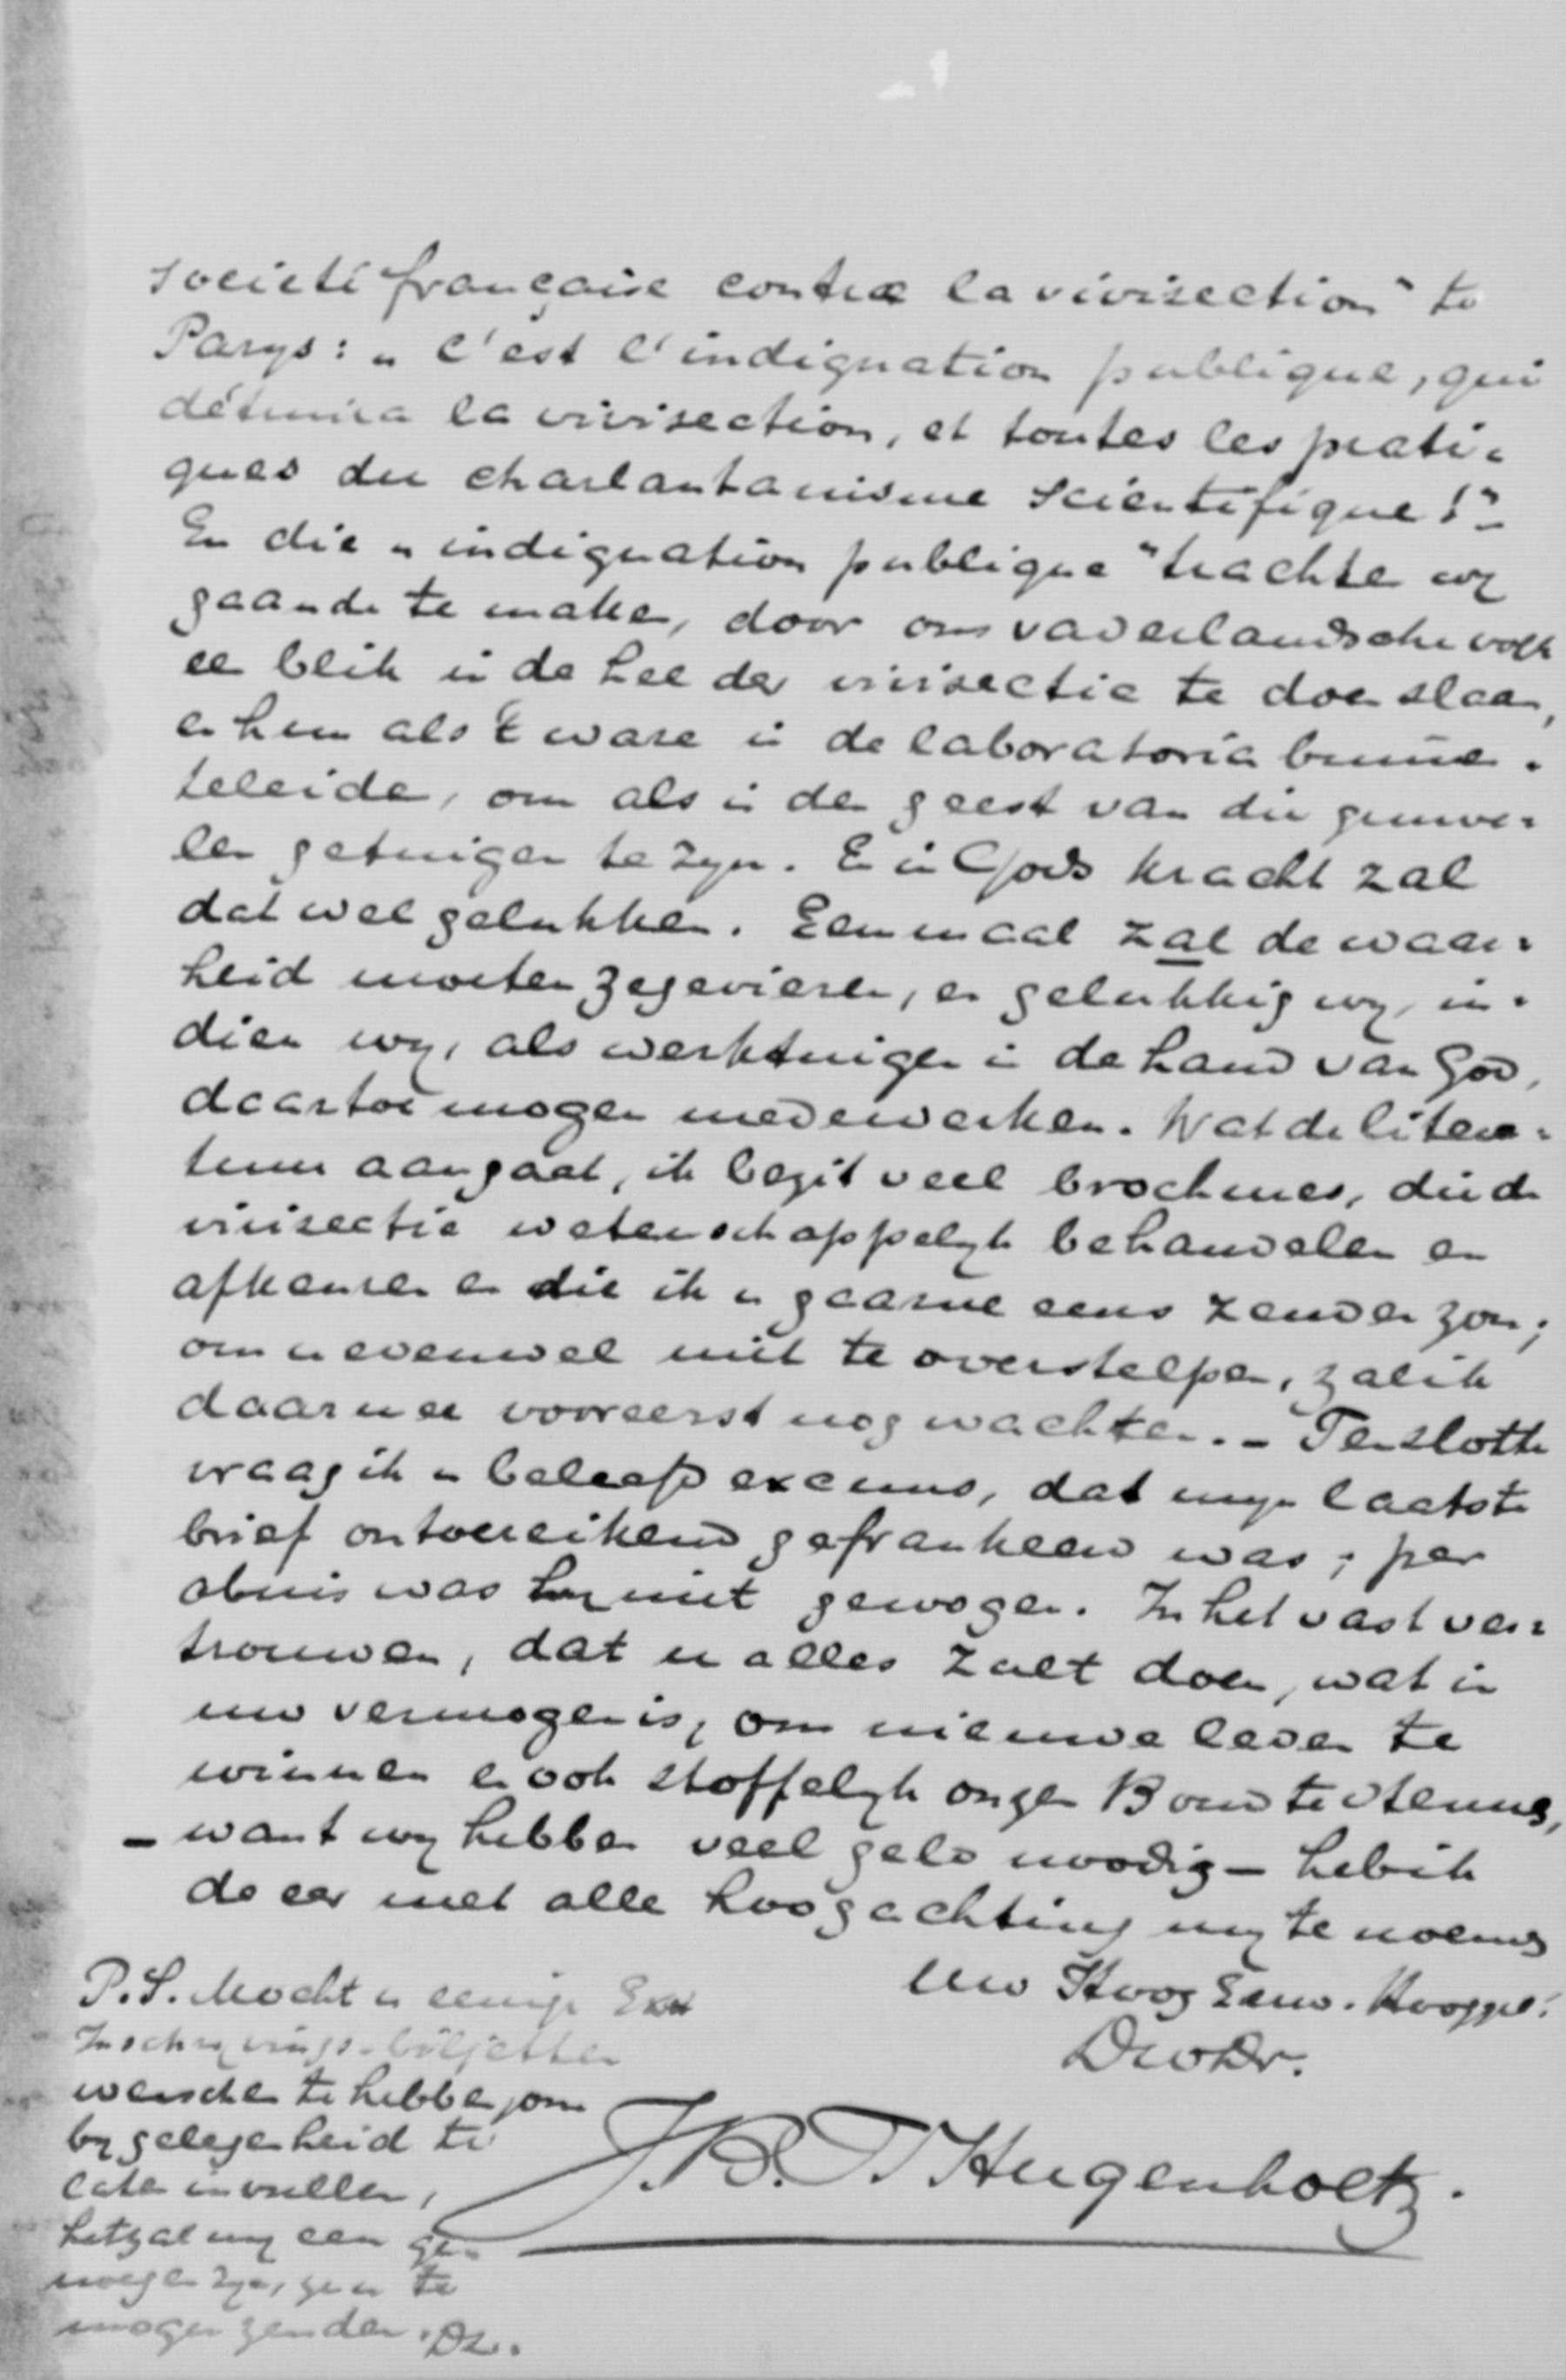 Societé française contre la vivisection" te
Parys: „ C'est l'indignation publique, qui
détruira la vivisection, et toutes les prati-
ques du charlantanisme scientifique!"–
En die „indignation publique" trachten wy
gaande te maken, door ons vaderlandsche volk
een blik in de hel der vivisectie te doen slaan,
en hem als 't ware in de laboratoria binnen-
teleiden, om als in den geest van die gruwe-
len getuigen te zyn. En in Gods kracht zal
dat wel gelukken. Eenmaal zal de waar-
heid moeten zegevieren, en gelukkig wy, in-
dien wy, als werktuigen in de hand van God,
daartoe mogen medewerken. Wat de litera-
tuur aangaat, ik bezit veel brochures, die de
vivisectie wetenschappelyk behandelen en
afkeuren en die ik u gaarne eens zenden zou;
om u evenwel niet te overstelpen, zal ik
daarmee vooreerst nog wachten. – Ten slotte
vraag ik u beleefd excuus, dat myn laatste
brief ontoereikend gefrankeerd was; per
abuis was hy niet gewogen. In het vast ver-
trouwen, dat u alles zult doen, wat in
uw vermogen is, om nieuwe leden te
winnen en ook stoffelyk onzen Bond te steunen,
– want wy hebben veel geld noodig – heb ik
de eer met alle hoogachting my te noemen
Uw Hoog Eerw.
DwDr.
J. B. Th Hugenholtz.
P.S. Mocht u eenige Ex
Inschryvings-biljetten
wenschen te hebben, om
by gelegenheid te
laten invullen,
het zal my een ge-
noegen zyn, ze u te
mogen zenden. Dz.